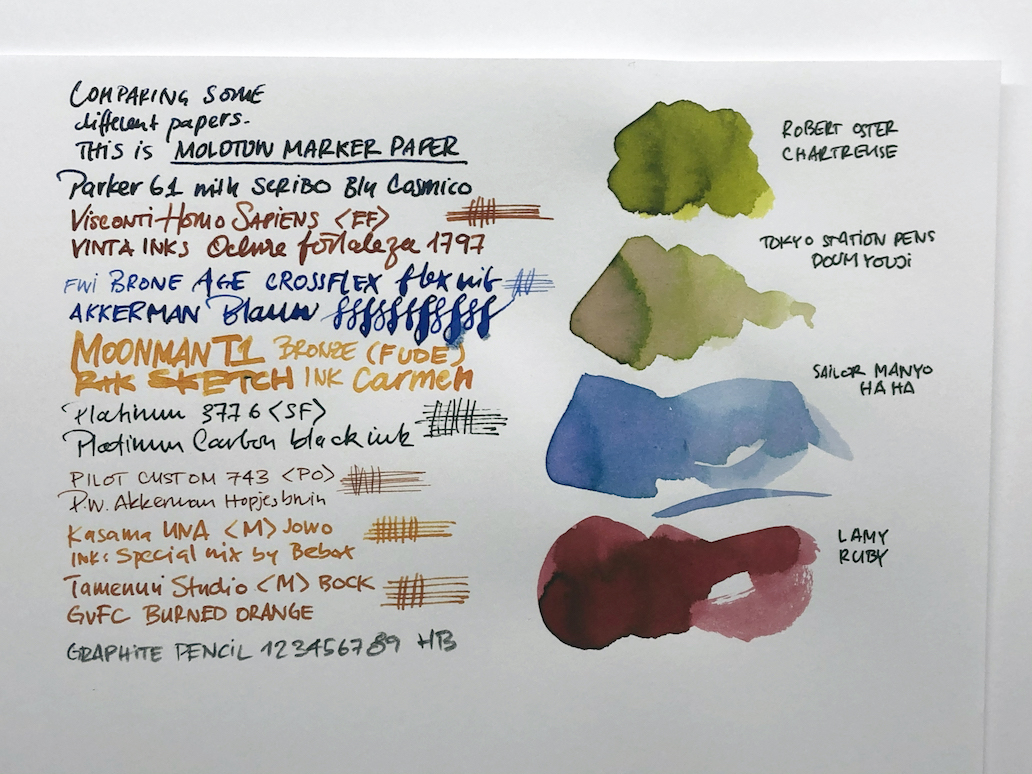 COMPARING SOME
different papers.
THIS is MOLOTOW MARKER PAPER
Parker 61 with SCRIBO Blu Cosmico
VISCONTI HOMO SAPIENS <EF>
VINTA INKS Ochre fortaleza 1797
FWI BRONE AGE CROSSFLEX flex nib
AKKERMAN Blauw
MOONMAN T1 BRONZE (FUDE)
R&K SKETCH INK Carmen
Platinum 3776 <SF>
Platinum Carbon black ink
PILOT CUSTOM 743 <PO>
P.W. Akkerman Hopjesbruin
Kasama UNA <M> Jowo
INK: Special mix by Bebox
Tamenuri Studio <M> BOCK
GVFC BURNED ORANGE
GRAPHITE PENCIL 123456789 HB
ROBERT OSTER
CHARTREUSE
TOKYO STATION PENS
DOUMYOUJI
SAILOR MANYO
HA HA
LAMY
RUBY